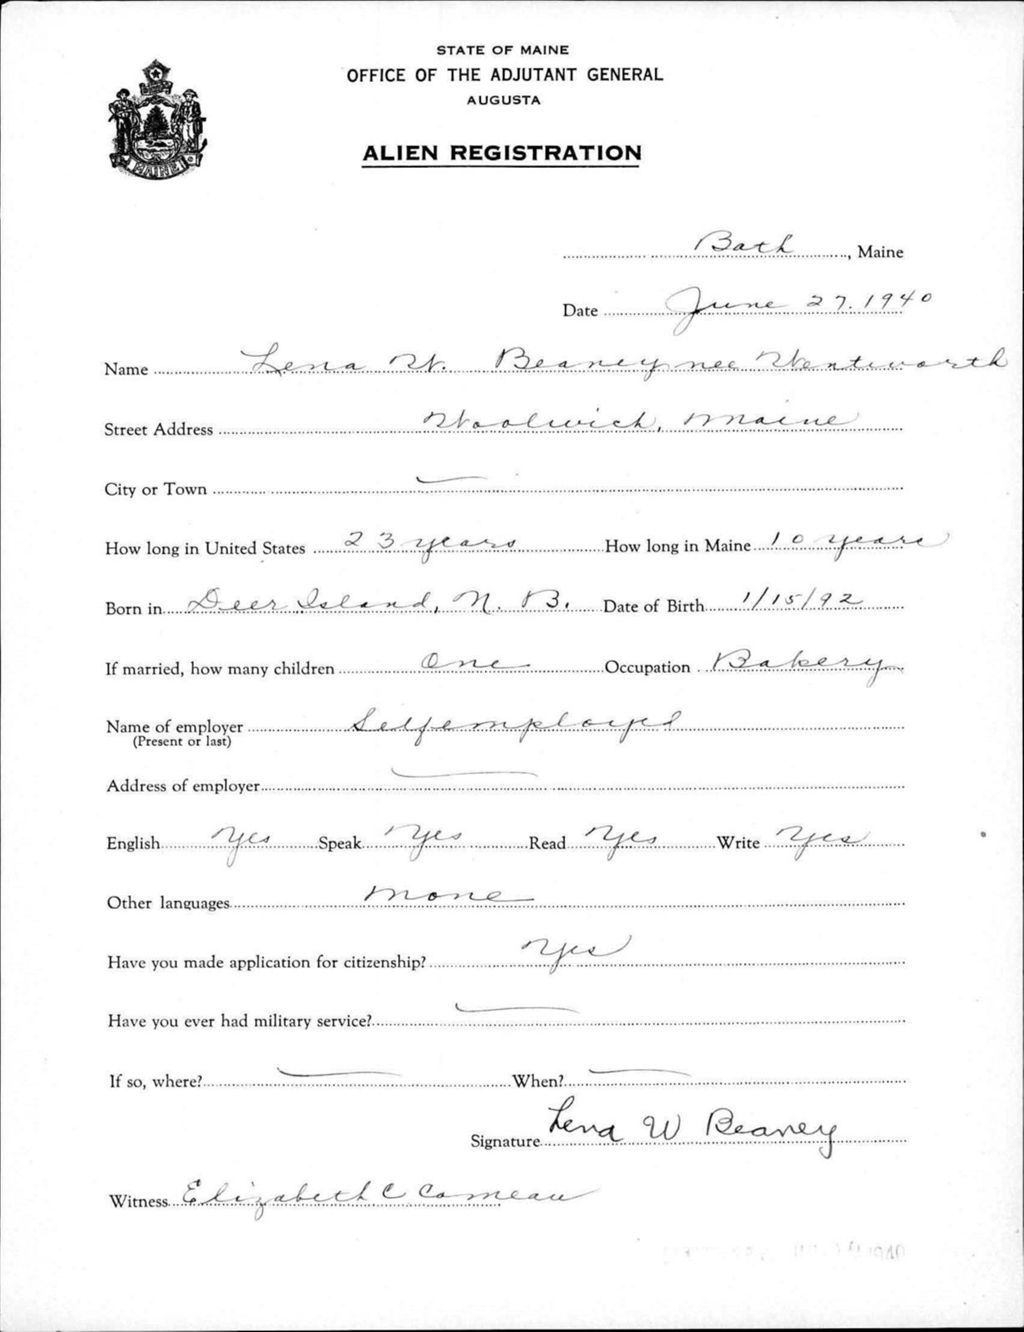 STATE OF MAINE
OFFICE OF THE ADJUTANT GENERAL
AUGUSTA
ALIEN REGISTRATION
MAINE
Bath, Maine
Date June 27. 1940
Name Lena W. Beaney nee Wentworth
Street Address Woolwich, Maine
City or Town —
How long in United States 23 years How long in Maine 10 years
Born in Deer Island, N. B. Date of Birth 1/15/92
If married, how many children One Occupation Bakery
Name of employer Selfemployed
(Present or last)
Address of employer —
English Yes Speak Yes Read Yes Write Yes
Other languages none
Have you made application for citizenship? Yes
Have you ever had military service? —
If so, where? — When? —
Signature Lena W Beaney
Witness Elizabeth C Comeau